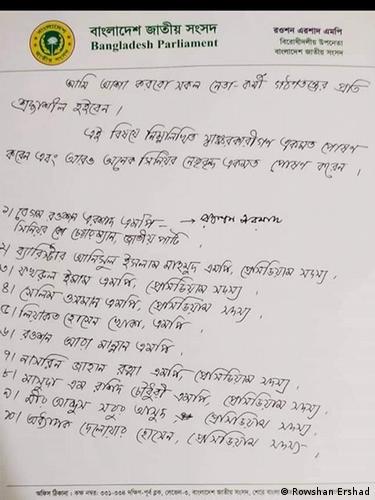 বাংলাদেশ জাতীয় সংসদ
Bangladesh Parliament
রওশন এরশাদ এমপি
বিরোধীদলীয় উপনেতা
বাংলাদেশ জাতীয় সংসদ
আমি আশা করবো সকল নেতা-কর্মী গঠণতন্ত্রের প্রতি
শ্রদ্ধাশীল হইবেন।
এই বিষয়ে নিম্নলিখিত স্বাক্ষরকারীগণ একমত পোষণ
করেন এবং আরও অনেক সিনিয়র নেতৃবৃন্দ একমত পোষণ করেন।
১। বেগম রওশন এরশাদ এমপি- → রওশন এরশাদ
সিনিয়র কো চেয়ারম্যান, জাতীয় পার্টি।
২। ব্যারিস্টার আনিসুল ইসলাম মাহমুদ এমপি, প্রেসিডিয়াম সদস্য।
৩। ফখরুল ইমাম এমপি, প্রেসিডিয়াম সদস্য।
৪। সেলিম ওসমান এমপি, প্রেসিডিয়াম সদস্য।
৫। লিয়াকত হোসেন খোকা, এমপি।
৬। রওশন আরা মান্নান এমপি।
৭। নাসরিন জাহান রত্না এমপি, প্রেসিডিয়াম সদস্য।
৮। মাসুদা এম রশিদ চৌধুরী এমপি, প্রেসিডিয়াম সদস্য।
৯। মীর আব্দুস সবুর আসুদ, প্রেসিডিয়াম সদস্য।
১০। অধ্যাপক দেলোয়ার হোসেন, প্রেসিডিয়াম সদস্য-
অফিস ঠিকানা : কক্ষ নম্বর: ৩৩১-৩৩৪ দক্ষিণ-পূর্ব ব্লক, লেভেল-৩, বাংলাদেশ জাতীয় সংসদ, শেরে বাংলা
© Rowshan Ershad